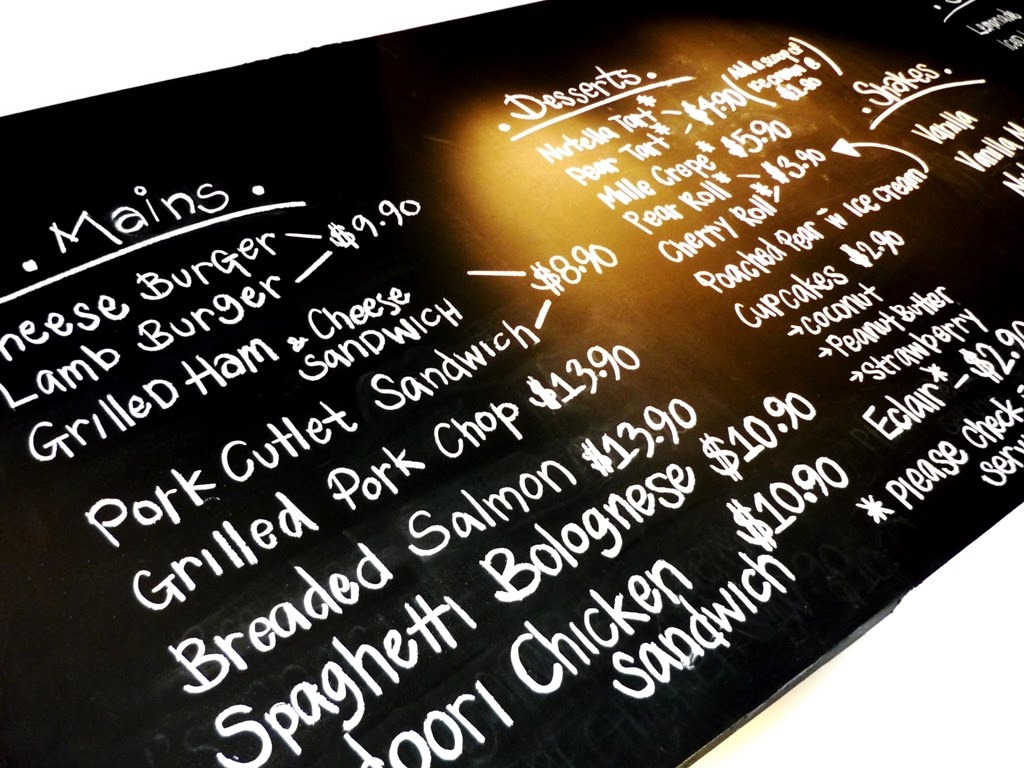 . Mains .
heese Burger
Lamb Burger
$9.90
Grilled Ham & Cheese
Sandwich
$8.90
Pork Cutlet Sandwich
Grilled Pork Chop $13.90
Breaded Salmon $13.90
Spaghetti Bolognese $10.90
doori Chicken $10.90
sandwich
. Desserts .
Nutella Tart*
Pear Tart*
$4.90 (Add a scoop of
ice cream @
$1.80)
Mille Crepe* $5.90
Pear Roll*
Cherry Roll*
$3.90
Poached Pear in Ice cream
Cupcakes $2.90
→ coconut
→ Peanut Butter
→ strawberry
Eclair* - $2.90
* Please check
serv
. Shakes .
Vanilla
Vanilla M
Lemonade